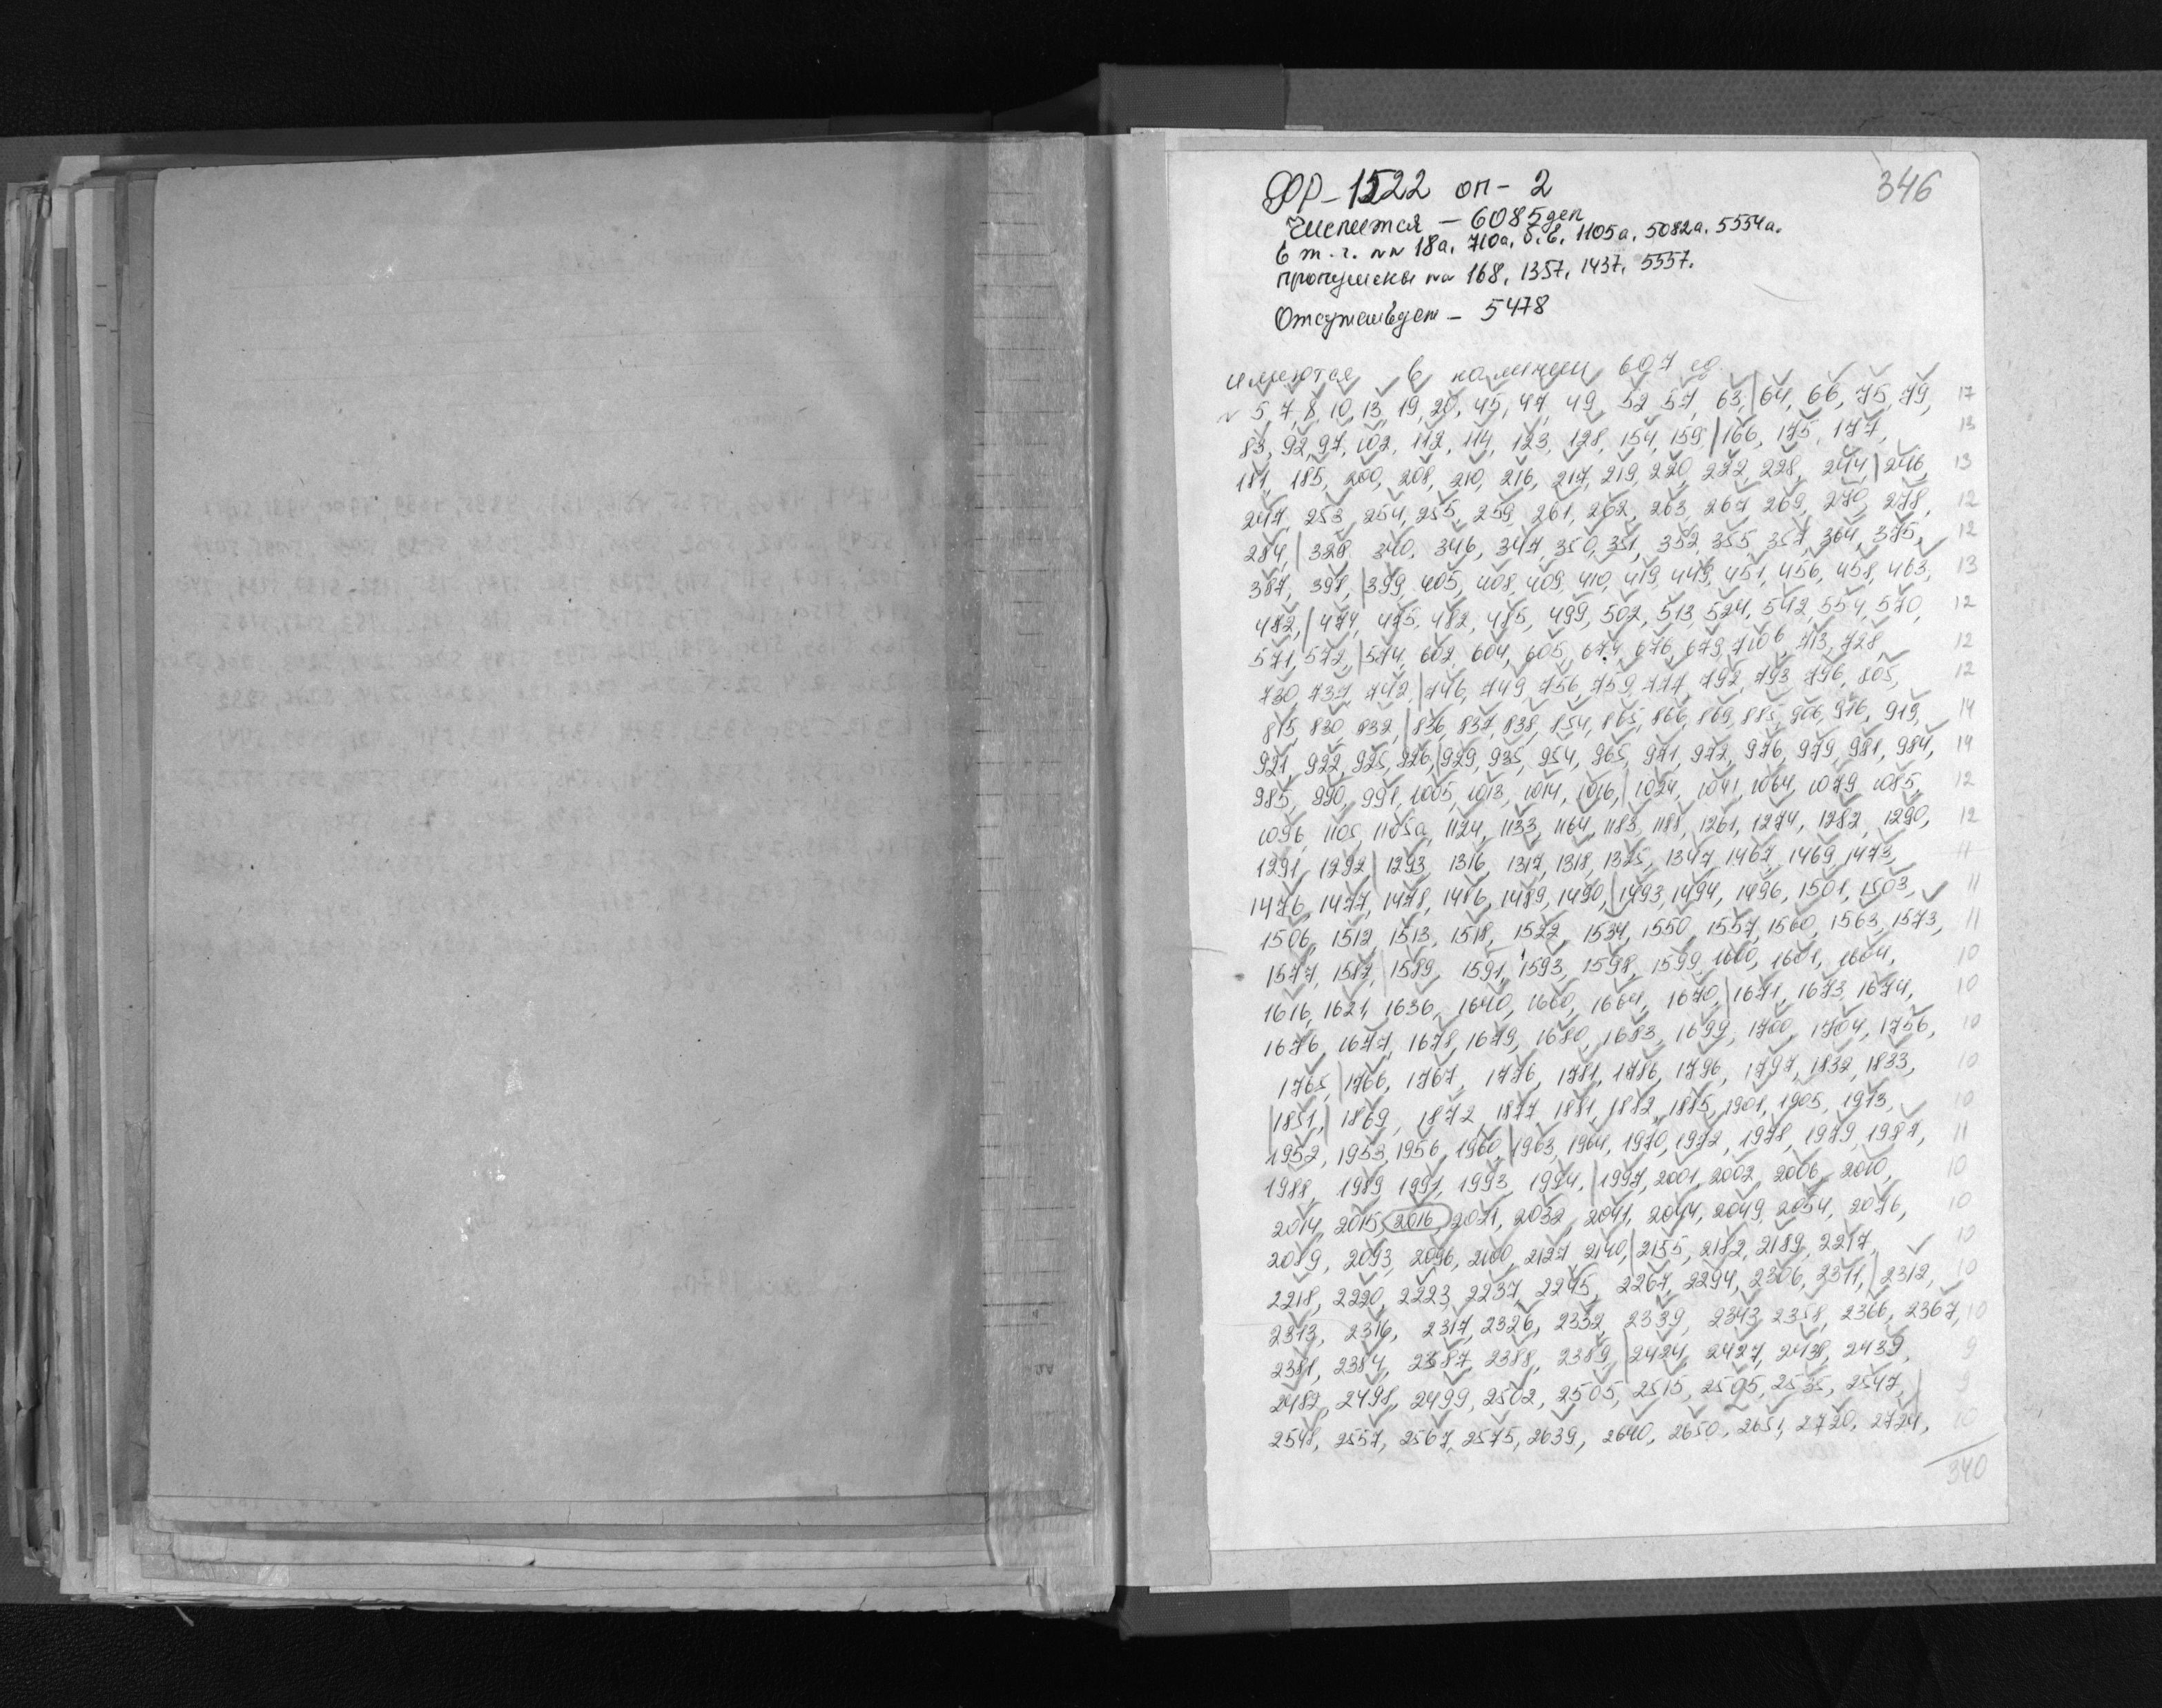 346
ФР-1522 оп-2
Числится — 6085 дел
в т.ч. №№ 18а, 710а, б, в, 1105а, 5082а, 5554а.
пропущены №№ 168, 1357, 1437, 5557.
Отсутствуют — 5478
имеются в наличии 607 ед.
№ 5, 7, 8, 10, 13, 19, 20, 45, 47, 49, 52, 57, 63, | 64, 66, 75, 79, 17
83, 92, 97, 102, 112, 114, 123, 128, 154, 159, | 166, 175, 177, 13
181, 185, 200, 208, 210, 216, 217, 219, 220, 222, 228, 244, | 246, 13
247, 253, 254, 255, 259, 261, 262, 263, 267, 269, 270, 278, 12
284, | 328, 340, 346, 347, 350, 351, 352, 355, 357, 364, 375, 12
387, 397, | 399, 405, 408, 409, 410, 419, 449, 451, 456, 458, 463, 13
482, | 474, 475, 482, 485, 499, 502, 513, 524, 542, 554, 570, 12
571, 572, | 574, 602, 604, 605, 674, 676, 679, 710б, 713, 728, 12
730, 737, 742, | 746, 749, 756, 759, 777, 792, 793, 796, 805, 12
815, 830, 832, | 836, 837, 838, 854, 865, 866, 869, 885, 906, 916, 919, 14
921, 922, 925, 926, | 929, 935, 954, 965, 971, 972, 976, 979, 981, 984, 14
985, 990, 991, 1005, 1013, 1014, 1016, | 1024, 1041, 1064, 1079, 1085, 12
1096, 1105, 1105а, 1124, 1133, 1164, 1183, 1188, 1261, 1274, 1282, 1290, 12
1291, 1292, | 1293, 1316, 1317, 1318, 1325, 1347, 1467, 1469, 1473, 11
1476, 1477, 1478, 1486, 1489, 1490, | 1493, 1494, 1496, 1501, 1503, 11
1506, 1512, 1513, 1518, 1522, 1534, 1550, 1557, 1560, 1563, 1573, 11
1577, 1587, | 1589, 1591, 1593, 1598, 1599, 1600, 1601, 1604, 10
1616, 1621, 1636, 1640, 1660, 1664, 1670, | 1671, 1673, 1674, 10
1676, 1677, 1678, 1679, 1680, 1683, 1699, 1700, 1704, 1756, 10
1765, | 1766, 1767, 1776, 1781, 1786, 1796, 1797, 1832, 1833, 10
| 1851, | 1869, 1872, 1877, 1881, 1882, 1885, 1901, 1905, 1913, 10
1952, 1953, 1956, 1960, | 1963, 1964, 1970, 1972, 1978, 1979, 1987, 11
1988, 1989, 1991, 1993, 1994, | 1997, 2001, 2002, 2006, 2010, 10
2014, 2015, 2016, 2021, 2032, 2041, 2044, 2049, 2054, 2076, 10
2089, 2093, 2096, 2100, 2127, 2140, | 2155, 2182, 2189, 2217, 10
2218, 2220, 2223, 2237, 2245, 2267, 2294, 2306, 2311, | 2312, 10
2313, 2316, 2317, 2326, 2332, 2339, 2343, 2358, 2366, 2367, 10
2381, 2384, 2387, 2388, 2389, | 2424, 2427, 2438, 2439, 9
2482, 2498, 2499, 2502, 2505, 2515, 2505, 2535, 2547, | 9
2548, 2557, 2567, 2575, 2639, 2640, 2650, 2651, 2720, 2724, 10
340